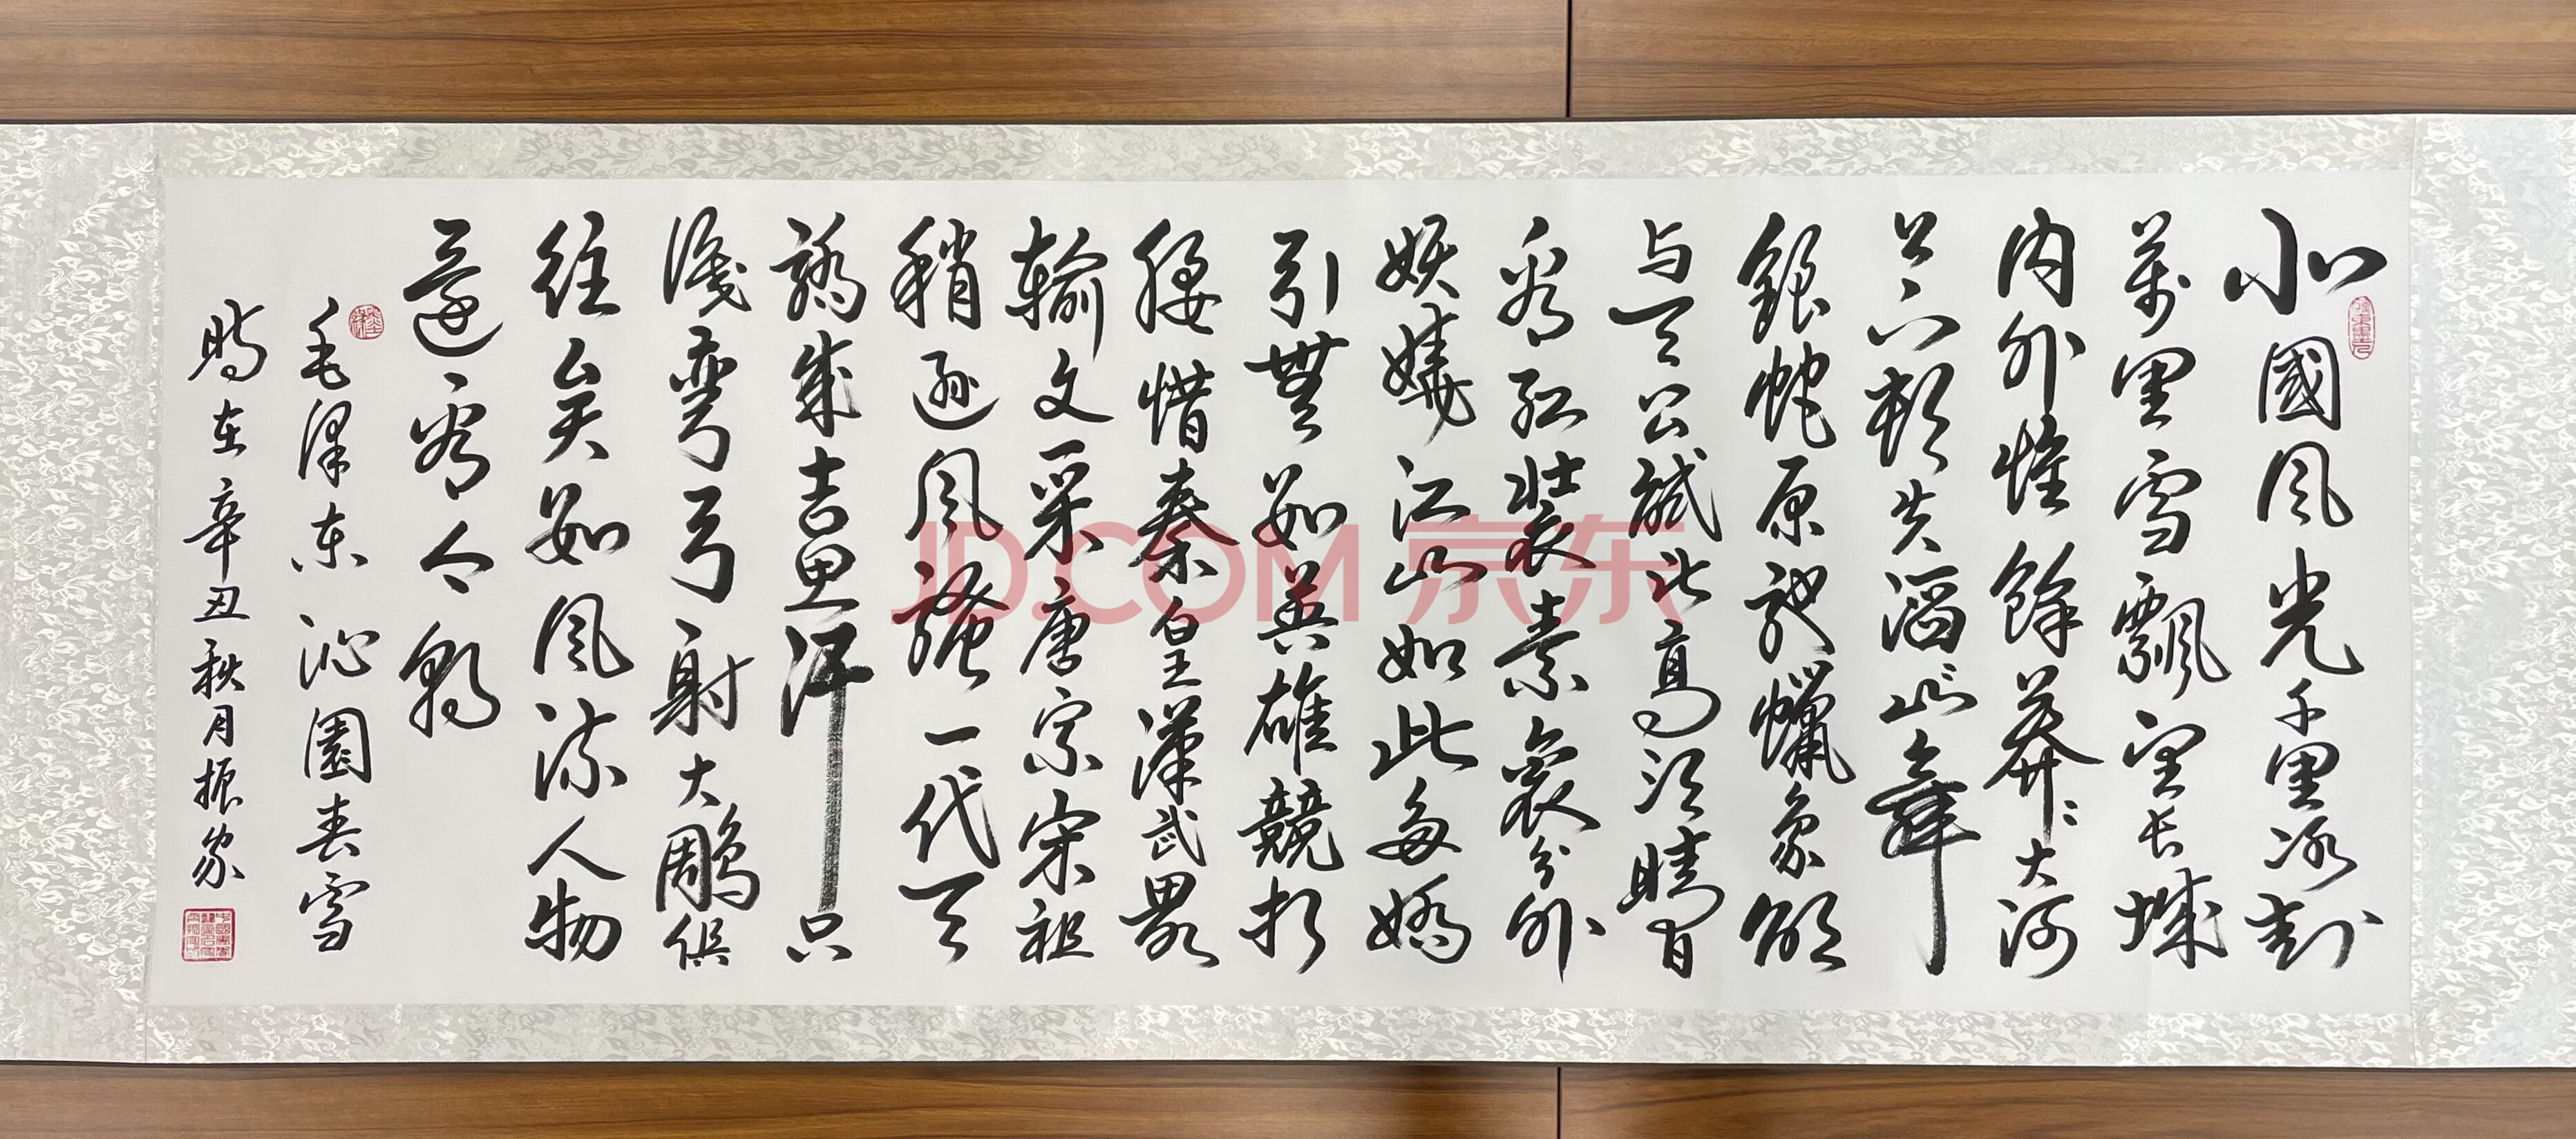 北國风光千里冰封
萬里雪飄望长城
内外惟餘莽〻大河
上下顿失滔〻山舞
銀蛇原驰蠟象欲
与天公試比高须晴日
看红裝素裹分外
妖嬈江山如此多嬌
引無数英雄競折
腰惜秦皇漢武畧
输文采唐宗宋祖
稍逊风骚一代天
骄成吉思汗只
识彎弓射大鵰俱
往矣数风流人物
還看今朝
毛泽东沁園春雪
时在辛丑秋月振家
JD.COM 京东